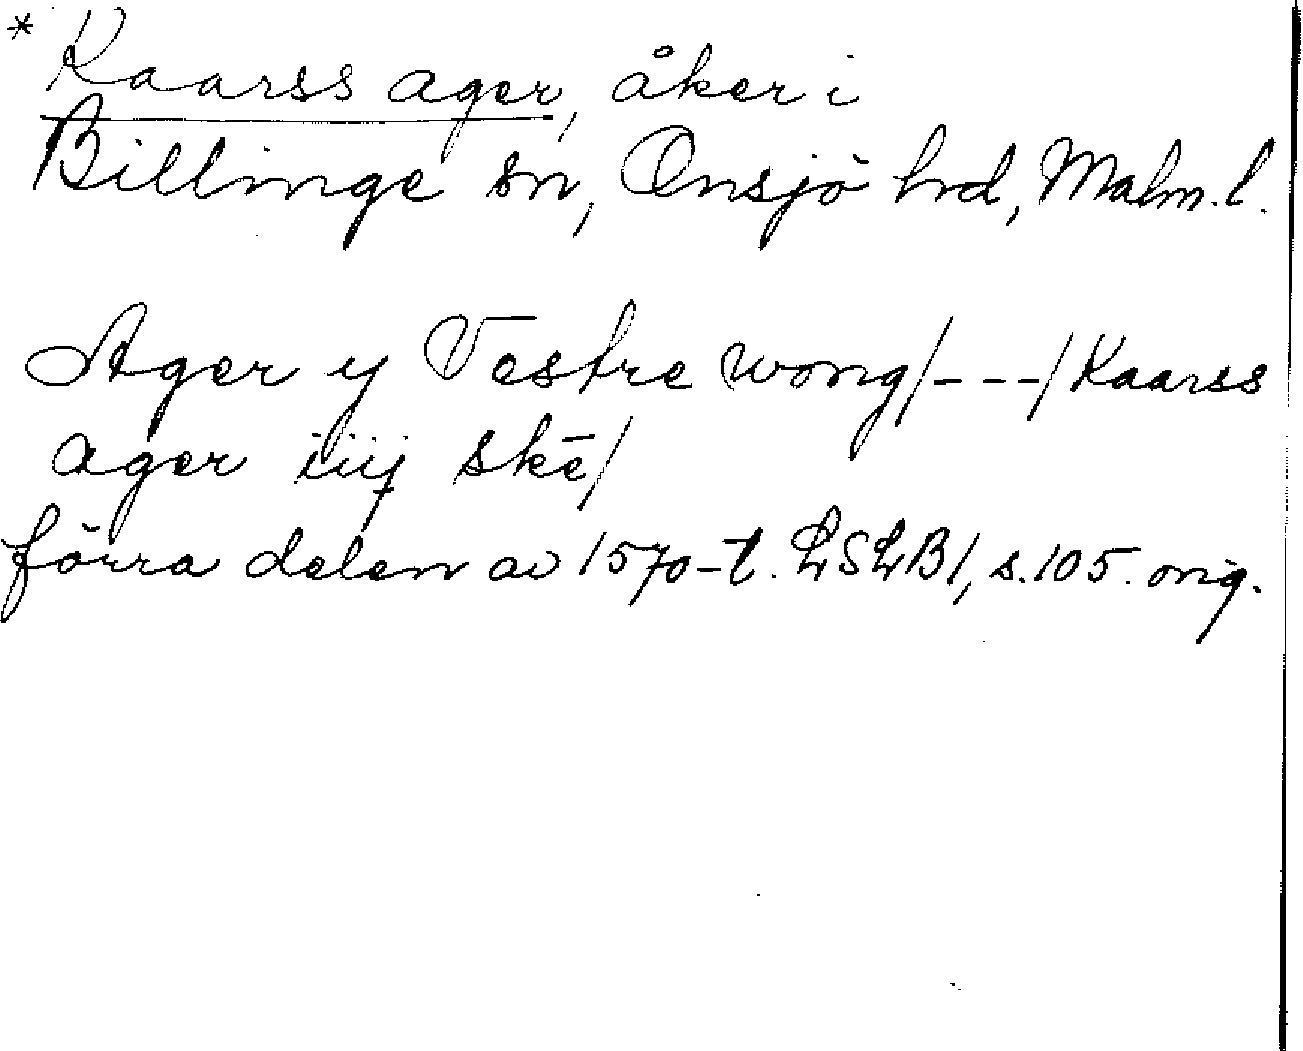 * Kaarss ager, åker i
Billinge sn, Onsjö hrd, Malm. l.
Ager y Vestre wong/---/Kaarss
ager iiij skē/
förra delen av 1570-t. LSLB1, s.105. orig.